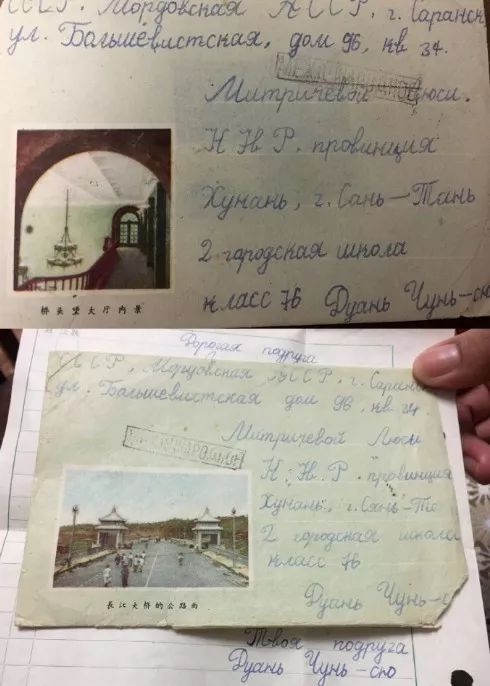 СССР. Мордовская АССР, г. Саранск
ул. Большевистская, дом 96, кв 34.
МЕЖДУНАРОДНОЕ
Митричевой Люси.
К Н Р. провинция
Хунань, г. Сань-Тань
2 городская школа
класс 76 Дуань Чунь-сю
桥头堡大厅内景
Дорогая подруга
АССР, Мордовская АССР, г. Саранск
ул. Большевистская дом 96, кв. 34.
МЕЖДУНАРОДНОЕ
Митричевой Люси
К. Н. Р. провинция
Хунань, г. Сянь-Та
2 городская школа
класс 76
Дуань Чунь-с
長江大桥的公路面
Твоя подруга
Дуань Чунь-сю